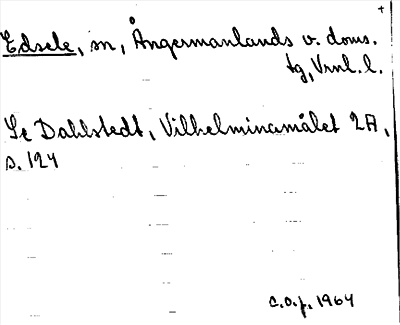 Edsele, sn, Ångermanlands v. doms.
tg, Vrnl. l.
Se Dahlstedt, Vilhelminamålet 2A,
s. 124
c.o.p. 1964